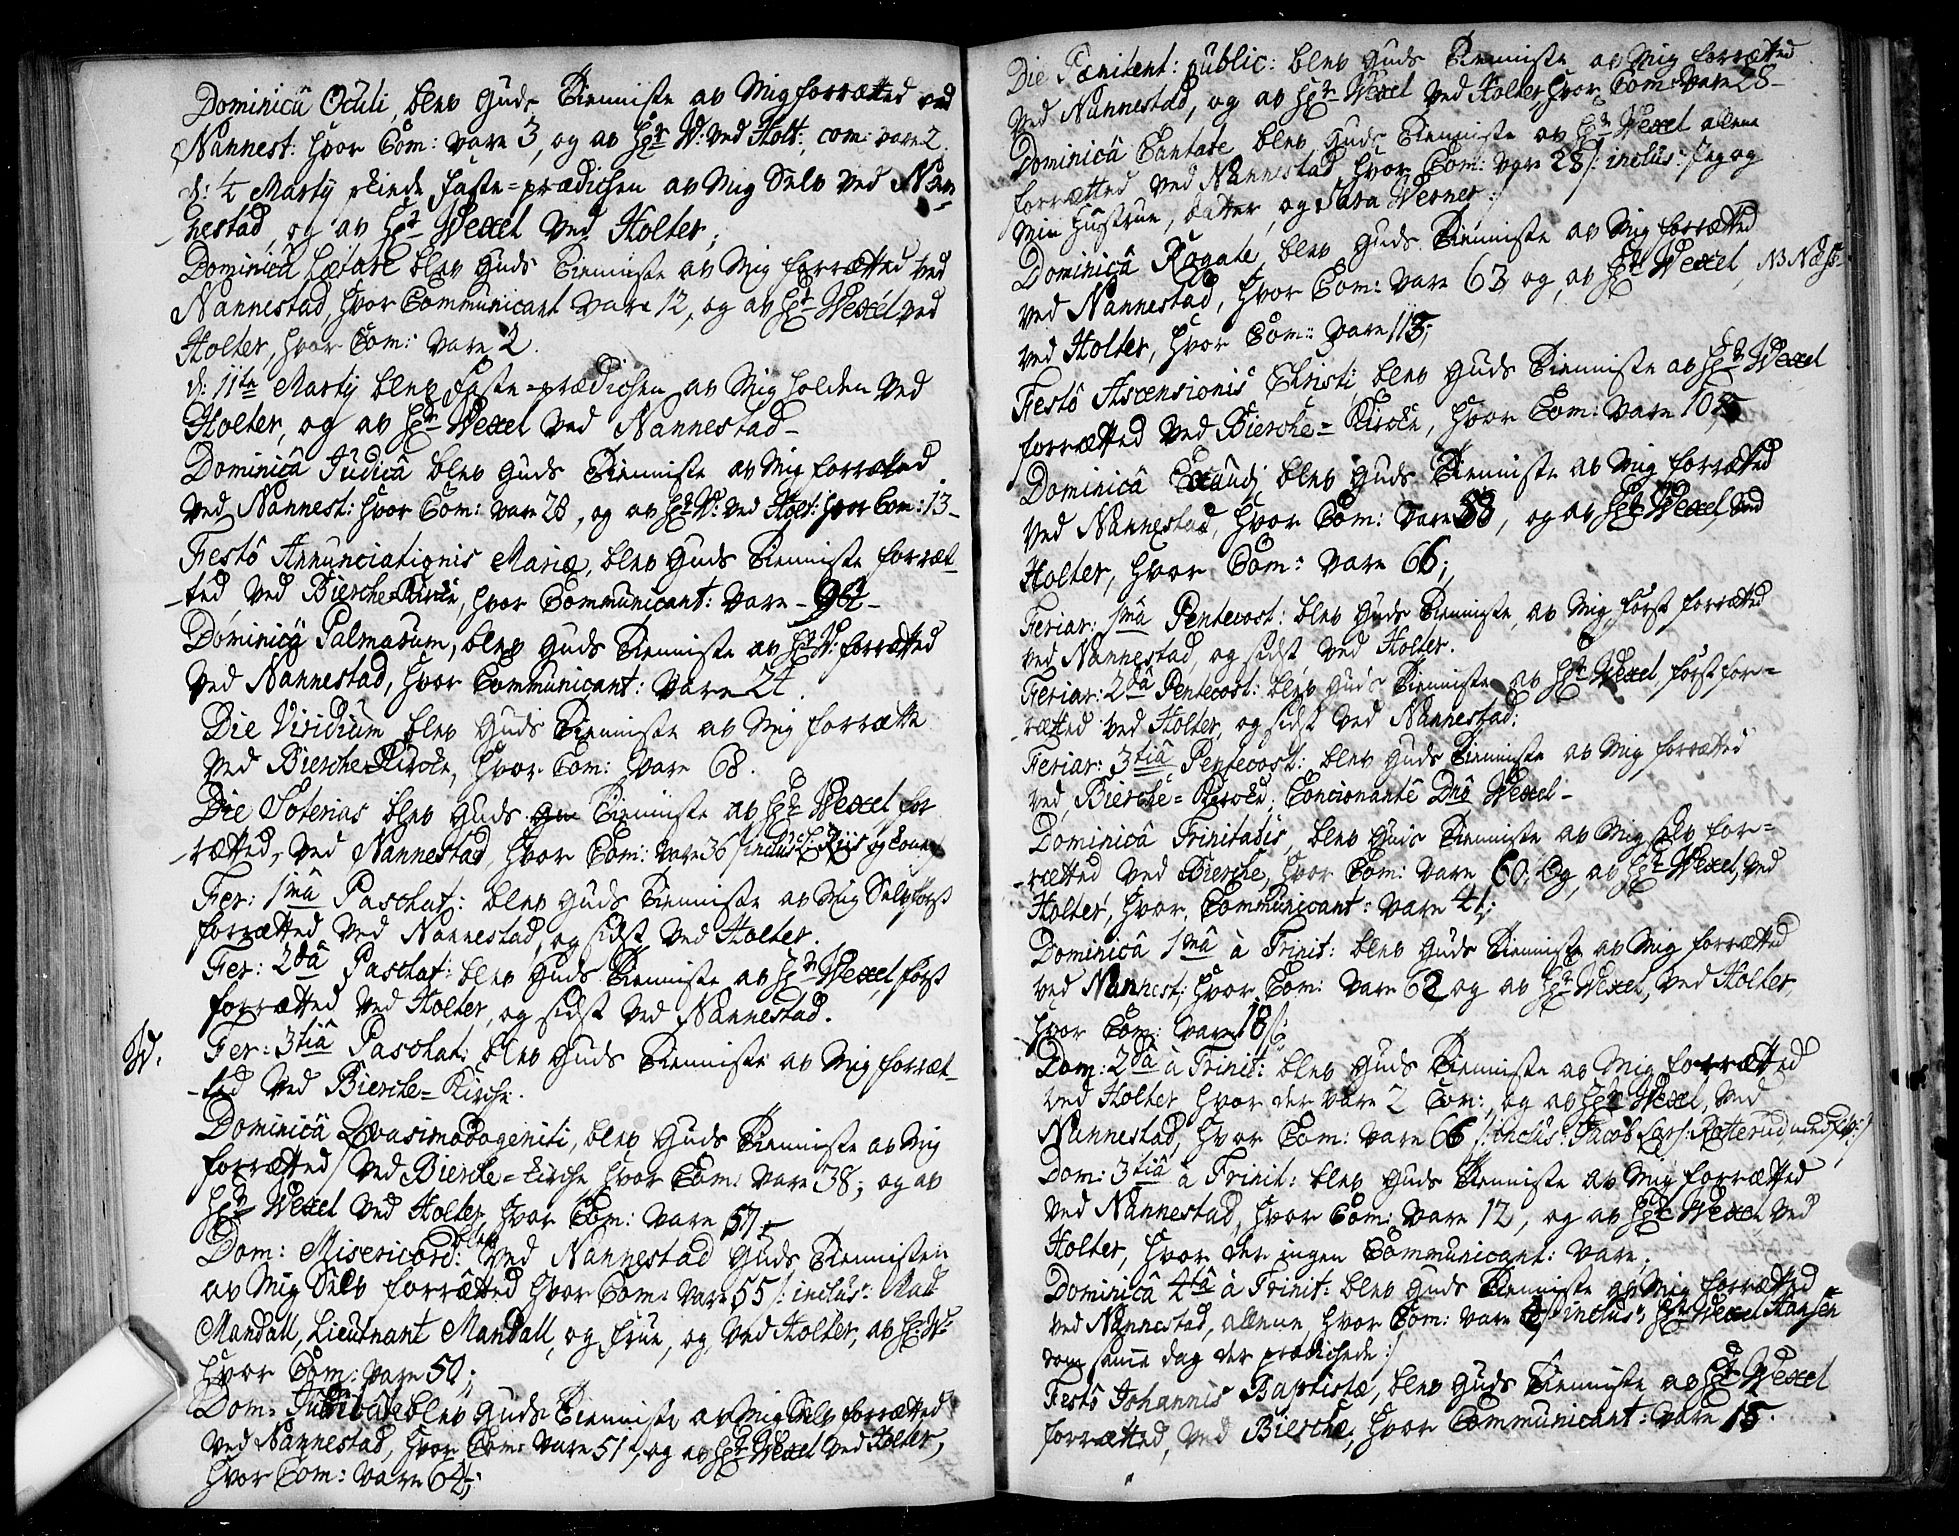 Dominicâ Oculi, blev Guds Tienniste av Mig forrætted ved
Nannest: hvor Com: vare 3, og av Hr W: ved Holt:, com: vare 2.
d: 4 Martij skiede faste=prædichen av Mig Selv ved Nan
nestad, og av Hr Wexel ved Holter;
Dominicâ Lætare blev Guds Tienniste av Mig forrætted ved
Nannestad, hvor Communicant vare 12, og av Hr Wexel ved
Holter, hvor Com: vare 2.
d: 11te Martij blev Faste=prædichen av Mig holden ved
Holter, og av Hr Wexel ved Nannestad-
Dominicâ Judicâ blev Guds Tienniste av Mig forrætted
ved Nannest: hvor Com: vare 28, og av Hr W: ved Holt: hvor Com: 13-
Festô Annunciationis Mariæ, blev Guds Tienniste forræt
-ted ved Bierche Kirke, hvor Communicant: vare
Dominicâ Palmarum, blev Guds Tienniste av Hr W: forrætted
ved Nannestad, hvor Communicant: vare 24.
Die Viridium blev Guds Tienniste av Mig forrætte
ved Bierche Kircke, hvor Com: vare 68.
Die Soterias blev Guds Tienniste av Hr Wexel for
-rætted, ved Nannestad, hvor Com: vare 36 /inclus: Riis og
Fer: 1mâ Paschat: blev Guds Tienniste av Mig Selv først
forrætted ved Nannestad, og sidst ved Holter.
Fer: 2dâ Paschat: blev Guds Tienniste av Hr Wexel, først
forrætted ved Holter, og sidst ved Nannestad.
Fer: 3tiâ Paschat: blev Guds Tienniste av Mig forræt
-ted ved Bierche=Kirche.
Dominicâ Qvasimodogeniti, blev Guds Tienniste av Mig
forrætted ved Bierche=Kirche hvor Com: vare 38; og av
Hr Wexel ved Holter, hvor Com: vare 57.
Dom: Misericord: blev ved Nannestad Guds Tiennisten
av Mig Selv forrætted hvor Com: vare 55 /: inclus:
Mandall, Lieutnant Mandall, og Frue, og ved Holter, av Hr W:
hvor Com: vare 50;
Dom: Jubilate blev Guds Tienniste av Mig Selv forrætted
ved Nannestad, hvor Com: vare 51, og av Hr Wexel ved Holter,
hvor Com: vare 64;
Die Pænitent: public: blev Guds Tienniste av Mig forrætted
ved Nannestad, og av Hr Wexel ved Holter, hvor Com: vare 28-
Dominicâ Cantate blev Guds Tienniste av Hr Wexel allene
forrætted ved Nannestad, hvor Com: vare 28 /: inclus: Jeg og
Min Hustrue, datter, og Sara Werner :/
Dominicâ Rogate, blev Guds Tienniste av Mig forrætted
ved Nannestad, hvor Com: vare 63, og av Hr Wexel,
ved Holter, hvor Com: vare 113;
Festô Ascensionis Christi, blev Guds Tienniste av Hr Wexel
forrætted ved Bierche=Kircke, hvor Com: vare
Dominicâ Exaudj blev Guds Tienniste av Mig forrætted
ved Nannestad, hvor Com: vare 58, og av Hr Wexel, ved
Holter, hvor Com: vare 66;
Feriar: 1mâ Pentecost: blev Guds Tienniste, av Mig først forrætted
ved Nannestad, og sidst ved Holter.
Feriar: 2dâ Pentecost: blev Guds Tienniste av Hr Wexel først for=
-rætted ved Holter, og sidst ved Nannestad:
Feriar: 3tiâ Pentecost: blev Guds Tienniste av Mig forrætted
ved Bierche=Kircke, Concionantê Dnô Wexel-
Dominicâ Trinitatis, blev Guds Tienniste av Mig selv for=
-rætted ved Bierche, hvor Com: vare 60; Og av Hr Wexel, ved
Holter, hvor Communicant: vare 41;
Dominicâ 1mâ à Trinit: blev Guds Tienniste av Mig forrætted
ved Nannest: hvor Com: vare 62 og av Hr Wexel, ved Holter,
hvor Com: vare 18;
Dom: 2dâ à Trinit: blev Guds Tienniste av Mig forrætted
ved Holter hvor der vare 2 Com:, og av Hr Wexel, ved
Nannestad, hvor Com: vare 66 /: inclus: Jacob Lars: Rotterud
Dom: 3tiâ à Trinit: blev Guds Tienniste av Mig forrætted
ved Nannestad, hvor Com: vare 12, og av Hr Wexel ved
Holter, hvor der ingen Communicant: vare,
Dominicâ 4tâ à Trinit: blev Guds Tienniste av Mig forrætted
ved Nannestad, allene, hvor Com: vare inclus: Hr Wexel Hansen
som samme dag der prædichede :/
Festô Johannis Baptistæ, blev Guds Tienniste av Hr Wexel
forrætted, ved Bierche, hvor Communicant: vare 15.